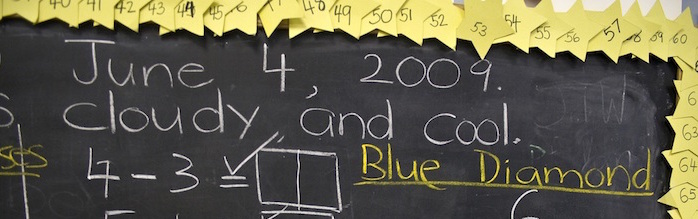 40 41 42 43 44 45 46 48 49 50 51 52 53 54 55 56 57 58 59 60
June 4, 2009.
cloudy and cool.
Blue Diamond
4 - 3 =
63
64
65